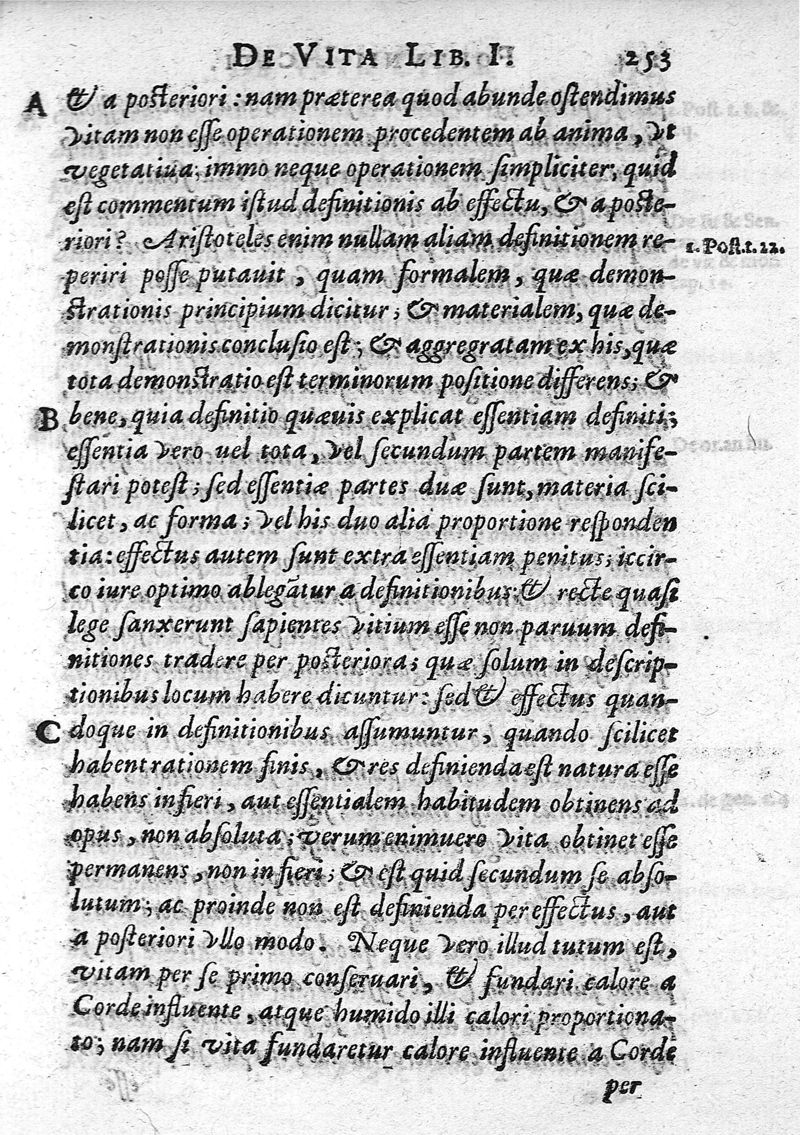 DE VITA LIB. I. 253
A & a posteriori: nam præterea quod abunde ostendimus
vitam non esse operationem procedentem ab anima, vt
vegetatiua; immo neque operationem simpliciter, quid
est commentum istud definitionis ab effectu, & a poste-
riori? Aristoteles enim nullam aliam definitionem re-
1. Post. t. 22.
periri posse putauit, quam formalem, quæ demon-
strationis principium dicitur; & materialem, quæ de-
monstrationis conclusio est; & aggregratam ex his, quæ
tota demonstratio est terminorum positione differens; &
B bene, quia definitio quæuis explicat essentiam definiti;
essentia vero uel tota, vel secundum partem manife-
stari potest; sed essentiæ partes duæ sunt, materia sci-
licet, ac forma; vel his duo alia proportione responden
tia: effectus autem sunt extra essentiam penitus; iccir-
co iure optimo ablegātur a definitionibus: & recte quasi
lege sanxerunt sapientes vitium esse non paruum defi-
nitiones tradere per posteriora; quæ solum in descrip-
tionibus locum habere dicuntur: sed & effectus quan-
C doque in definitionibus assumuntur, quando scilicet
habent rationem finis, & res definienda est natura esse
habens in fieri, aut essentialem habitudem obtinens ad
opus, non absoluta; verum enimuero vita obtinet esse
permanens, non in fieri; & est quid secundum se abso-
lutum; ac proinde non est definienda per effectus, aut
a posteriori vllo modo. Neque vero illud tutum est,
vitam per se primo conseruari, & fundari calore a
Corde influente, atque humido illi calori proportiona-
to; nam si vita fundaretur calore influente a Corde
per